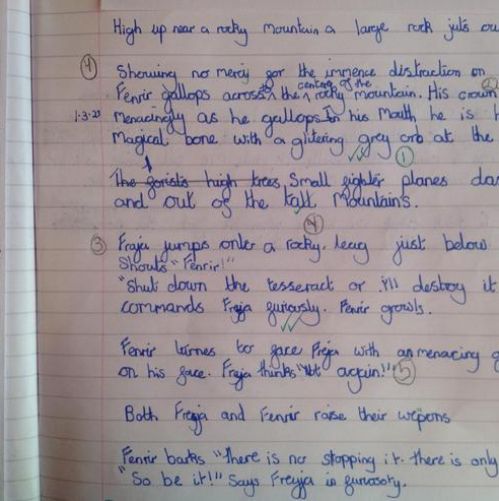 High up near a rocky mountain a large rock juts ou
④
Showing no mercy gor the immence distraction on
centere of the
Fenrir gallops across the rocky mountain. His crown
1.3.23 menacingly as he gallops in his mouth he is h
Magical bone with a glitering grey orb at the
①
The gorists high trees. Small gighter planes da
and out of the tall mountains.
④
③ Fraja jumps onter a rocky. leag just below
Shouts "Fenrir!"
"Shut down the tesseract or i'll destroy it
commands Freja guriously. Fenrir growls.
Fenrir turnes to gace Freja with an menacing g
on his gace. Freja thinks "Not again!" ⑤
Both Freyja and Fenrir raise their wepons
Fenrir barks "There is no stopping it. there is only
"So be it!" Says Freyja in guriosoty.